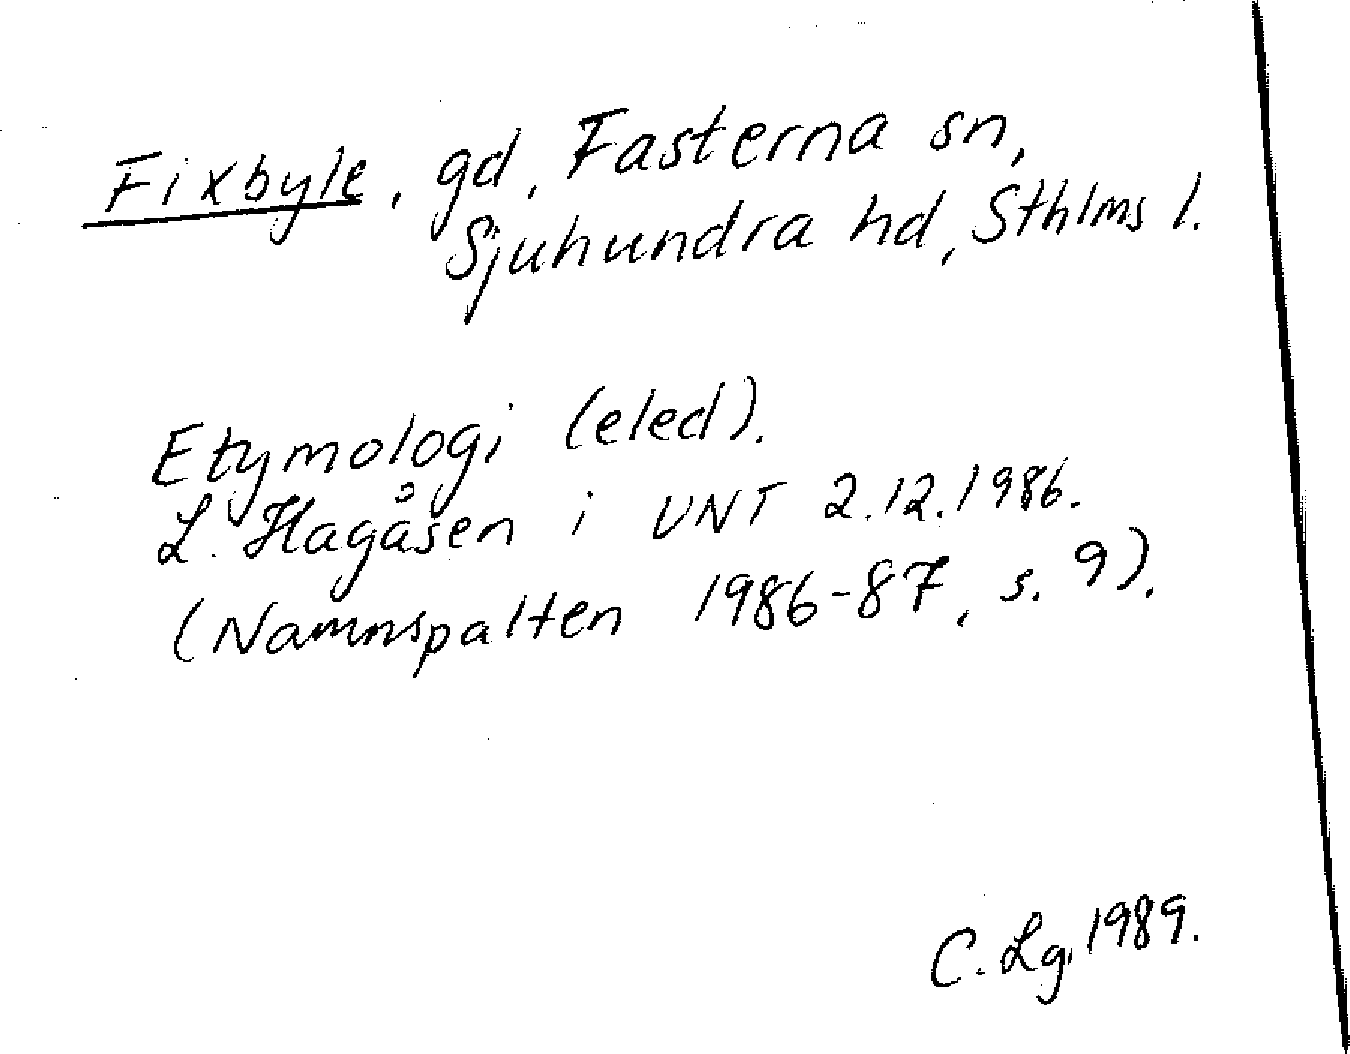 Fixbyle, gd, Fasterna sn,
Sjuhundra hd, Sthlms l.
Etymologi (eled).
L. Hagåsen i UNT 2.12.1986.
(Namnspalten 1986-87, s. 9).
C. Lg. 1989.